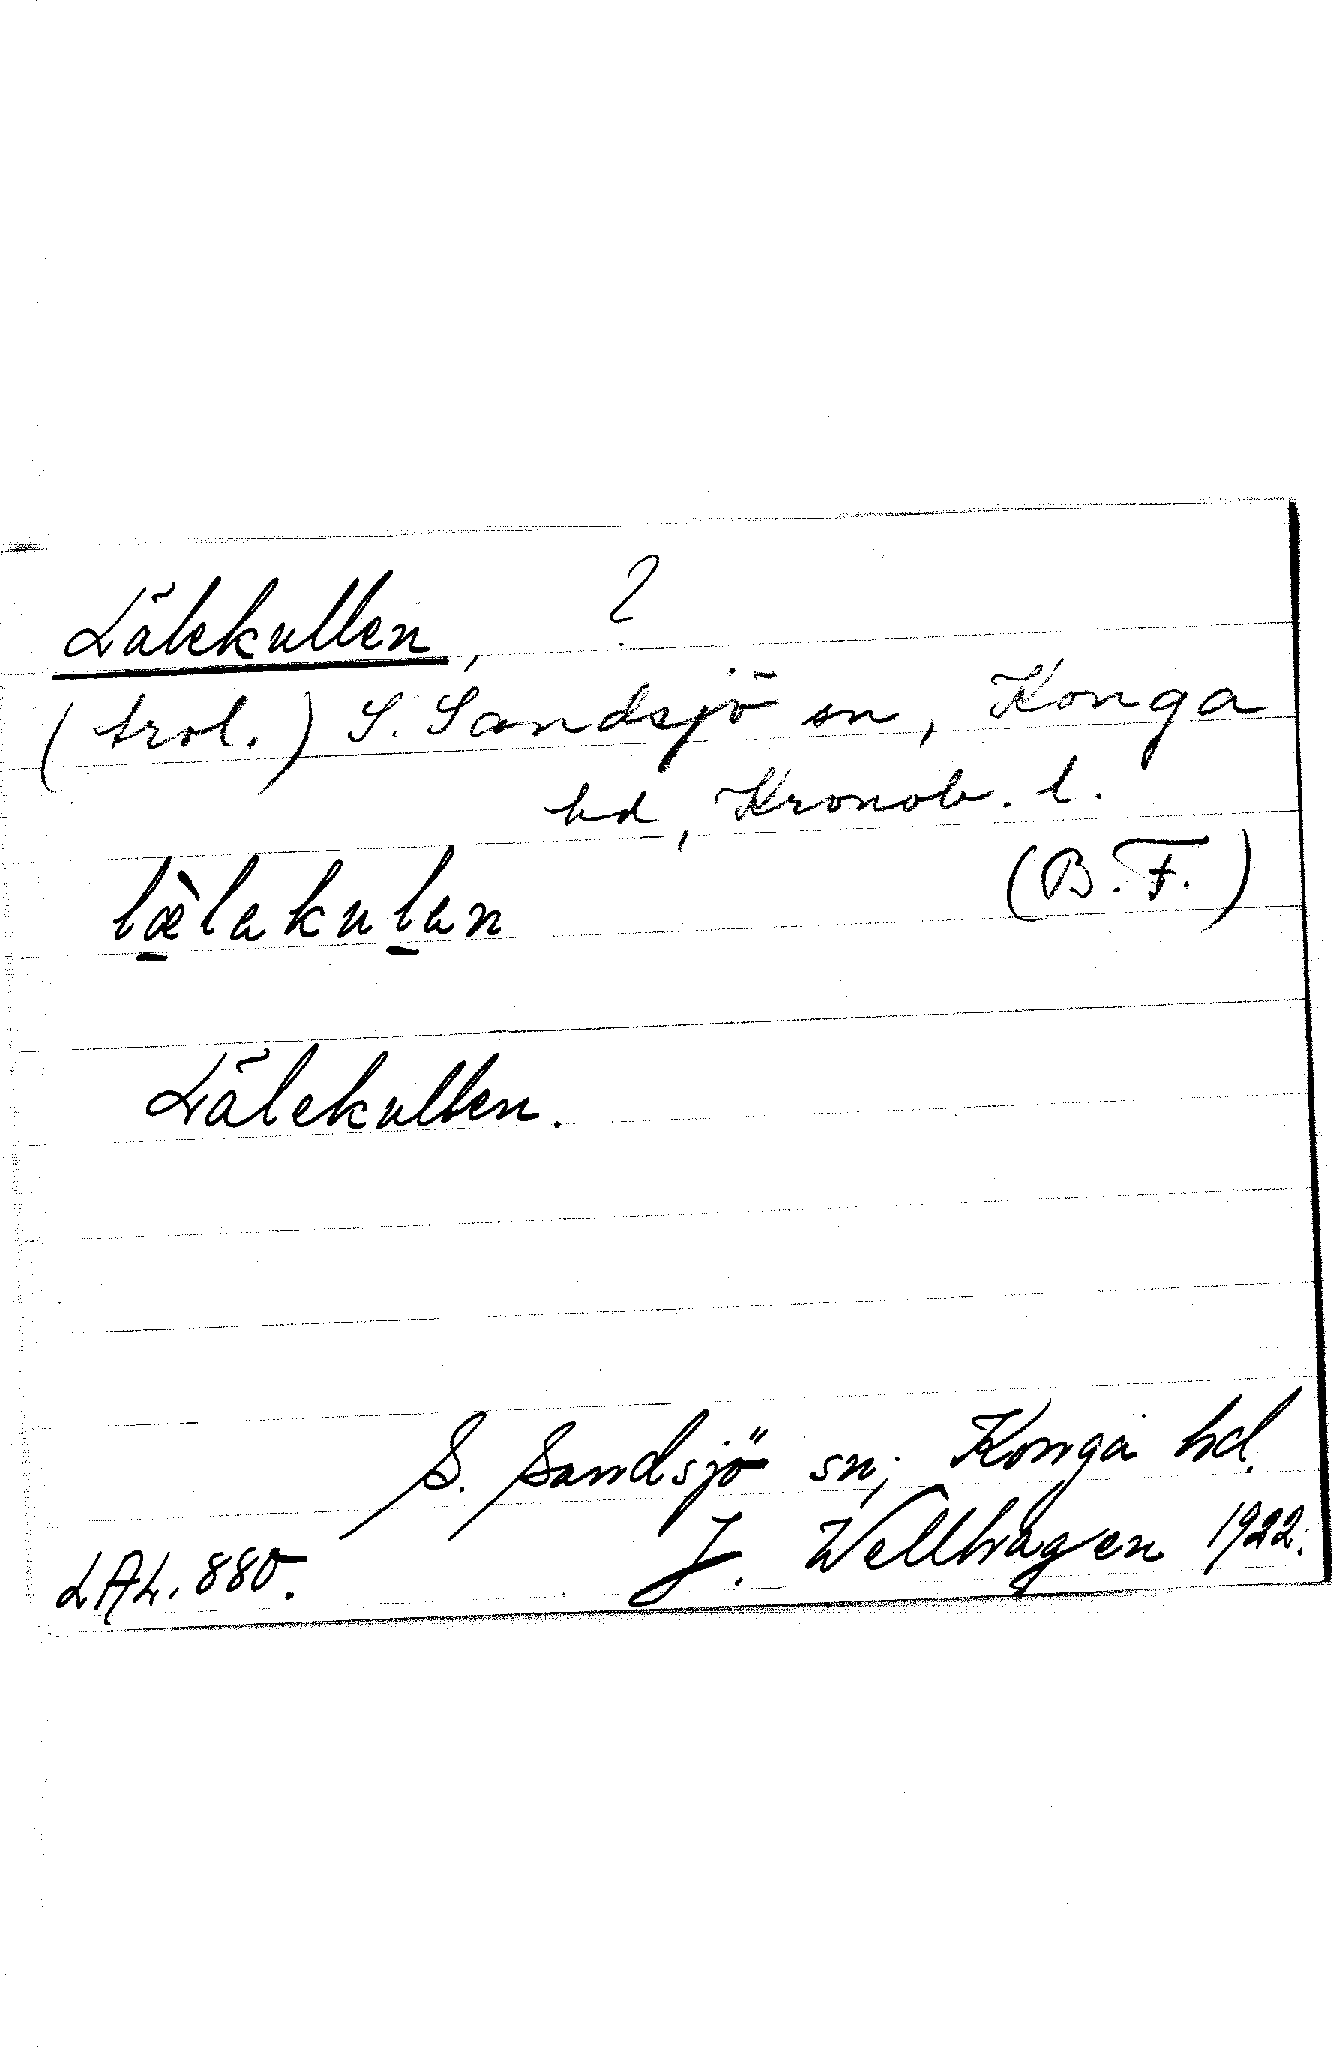 Lälekullen, ?
(trol.) S. Sandsjö sn, Konga
hd, Kronob. l.
(B. F.)
læ̀lakulan
Lälekullen.
S. Sandsjö sn, Konga hd.
J. Wellhagen 1922.
LAL. 880.